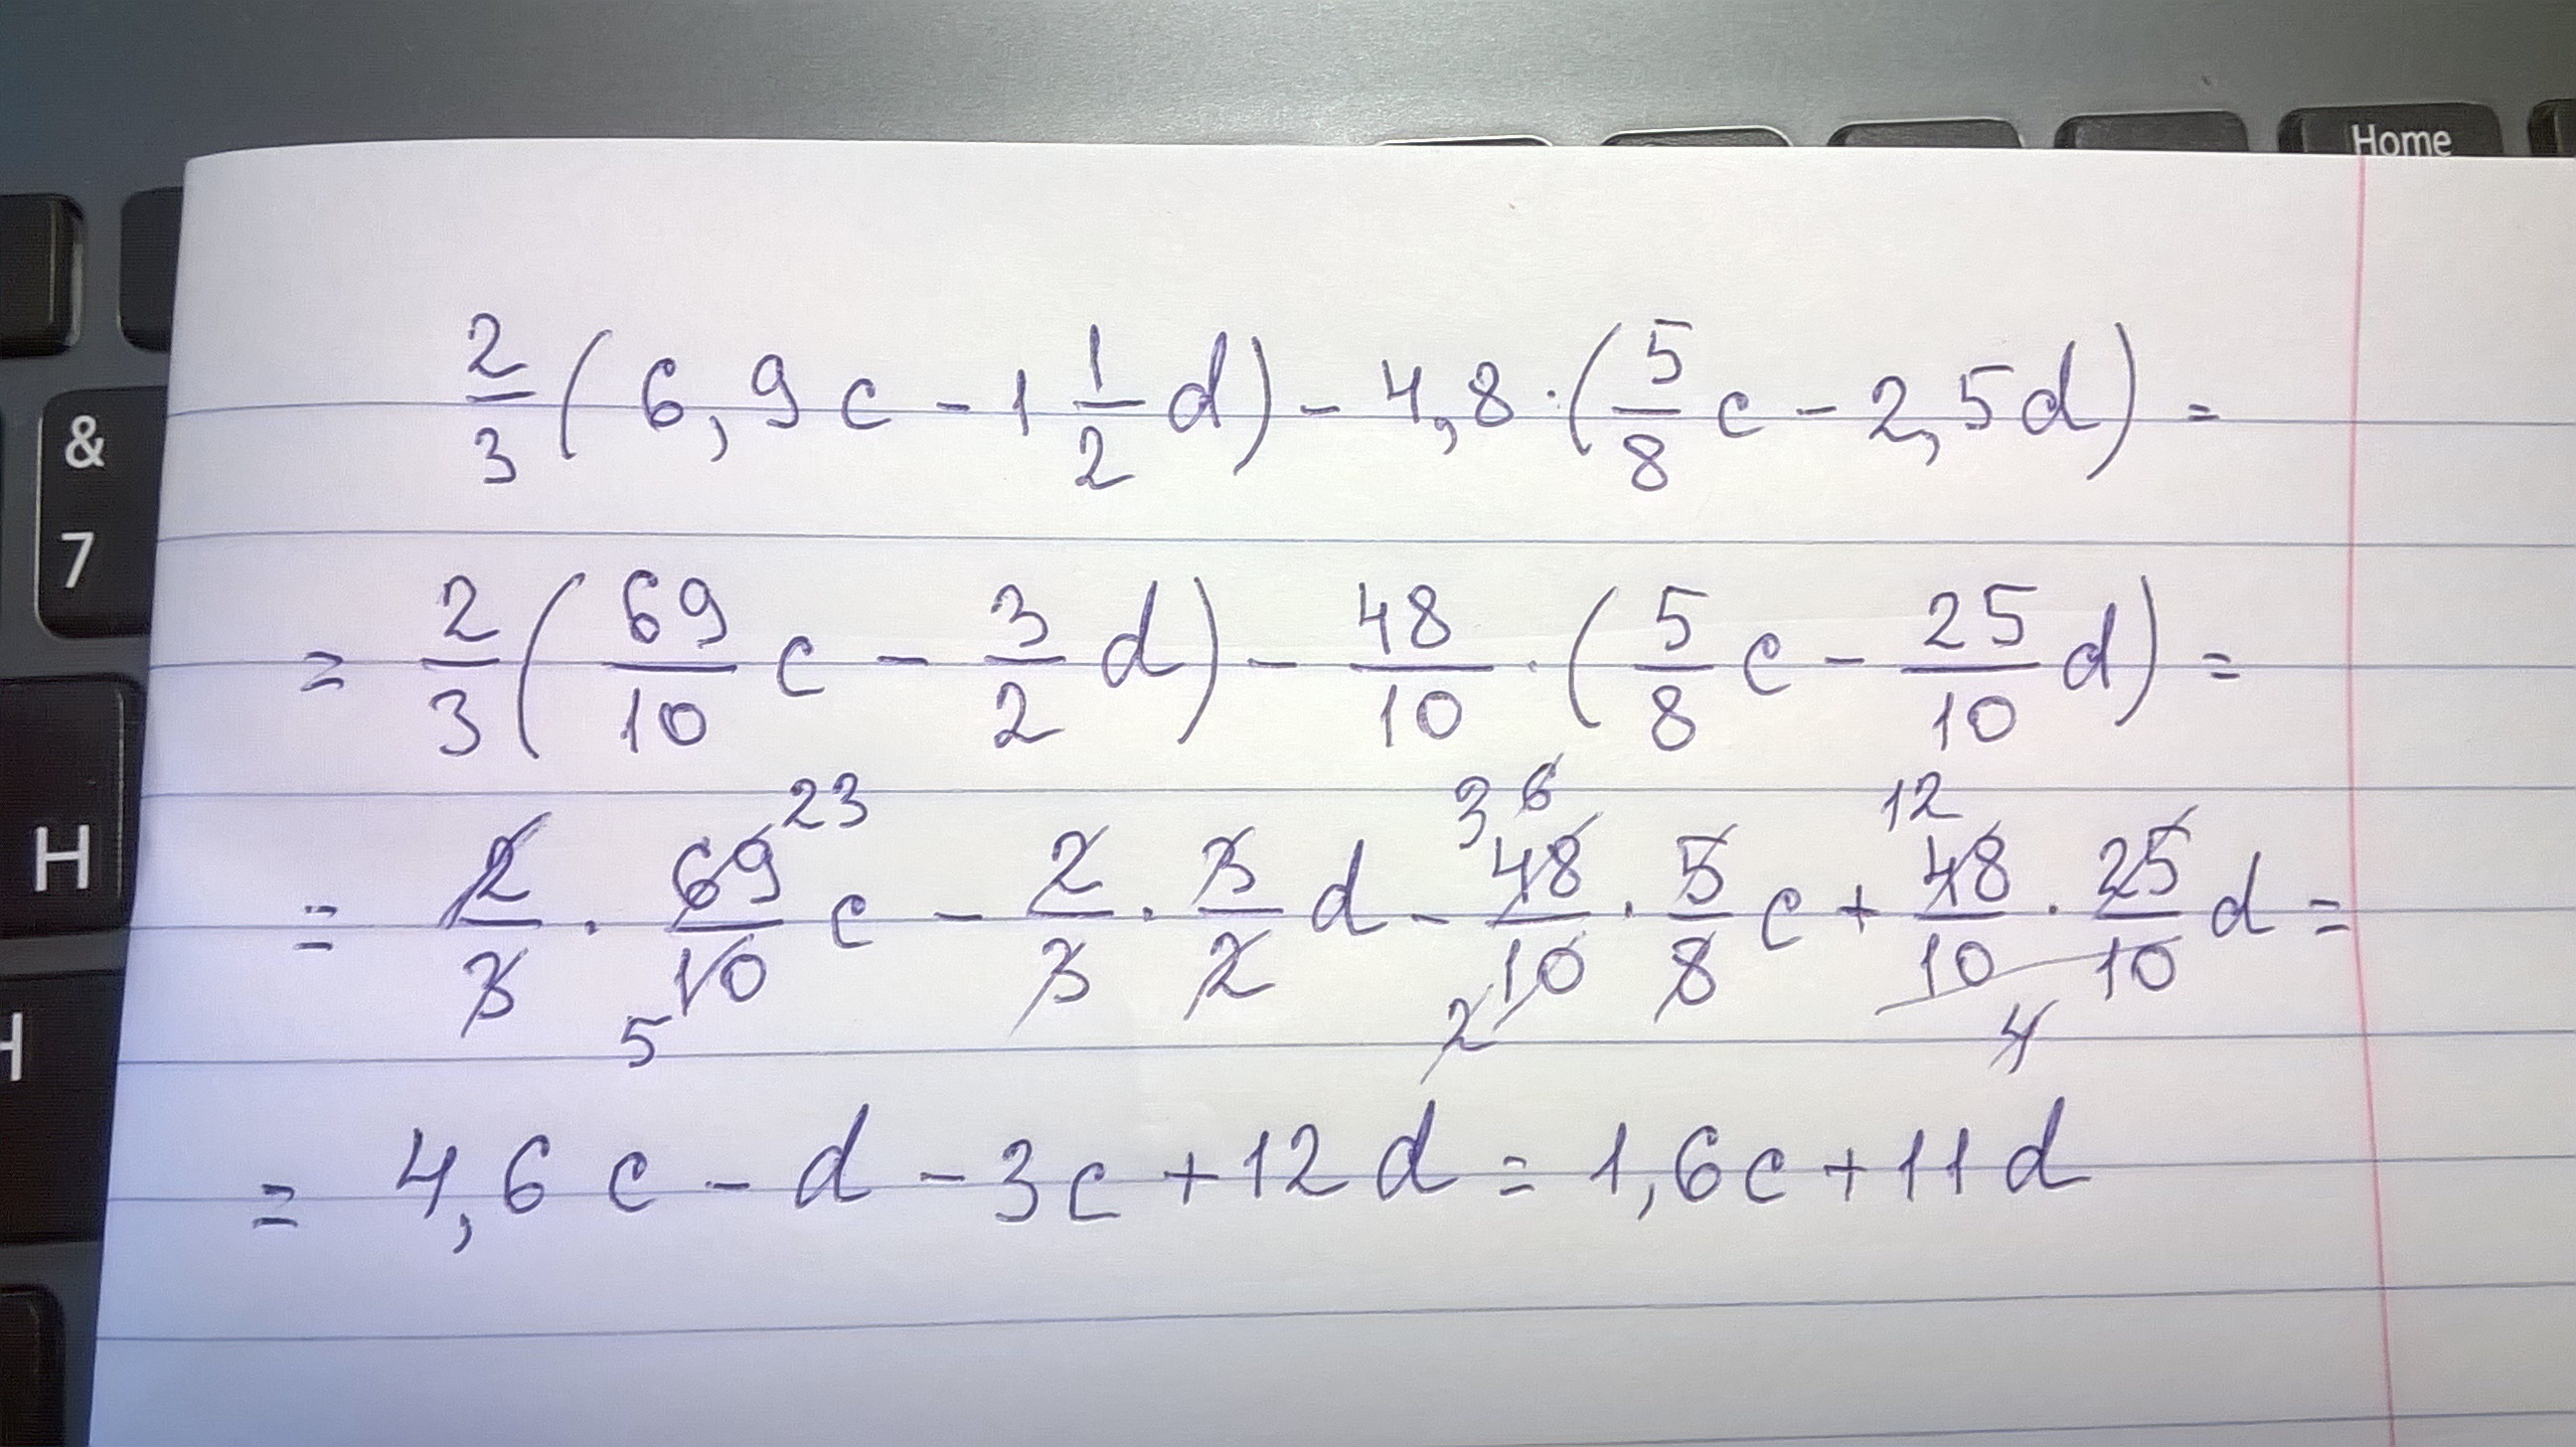 Home
&
7
H
2/3 (6,9c - 1 1/2 d) - 4,8 · (5/8 c - 2,5d) =
= 2/3 (69/10 c - 3/2 d) - 48/10 · (5/8 c - 25/10 d) =
23 3 6 12
= 2/3 · 69/10 c - 2/3 · 3/2 d - 48/10 · 5/8 c + 48/10 · 25/10 d =
5 2 4
= 4,6c - d - 3c + 12d = 1,6c + 11d